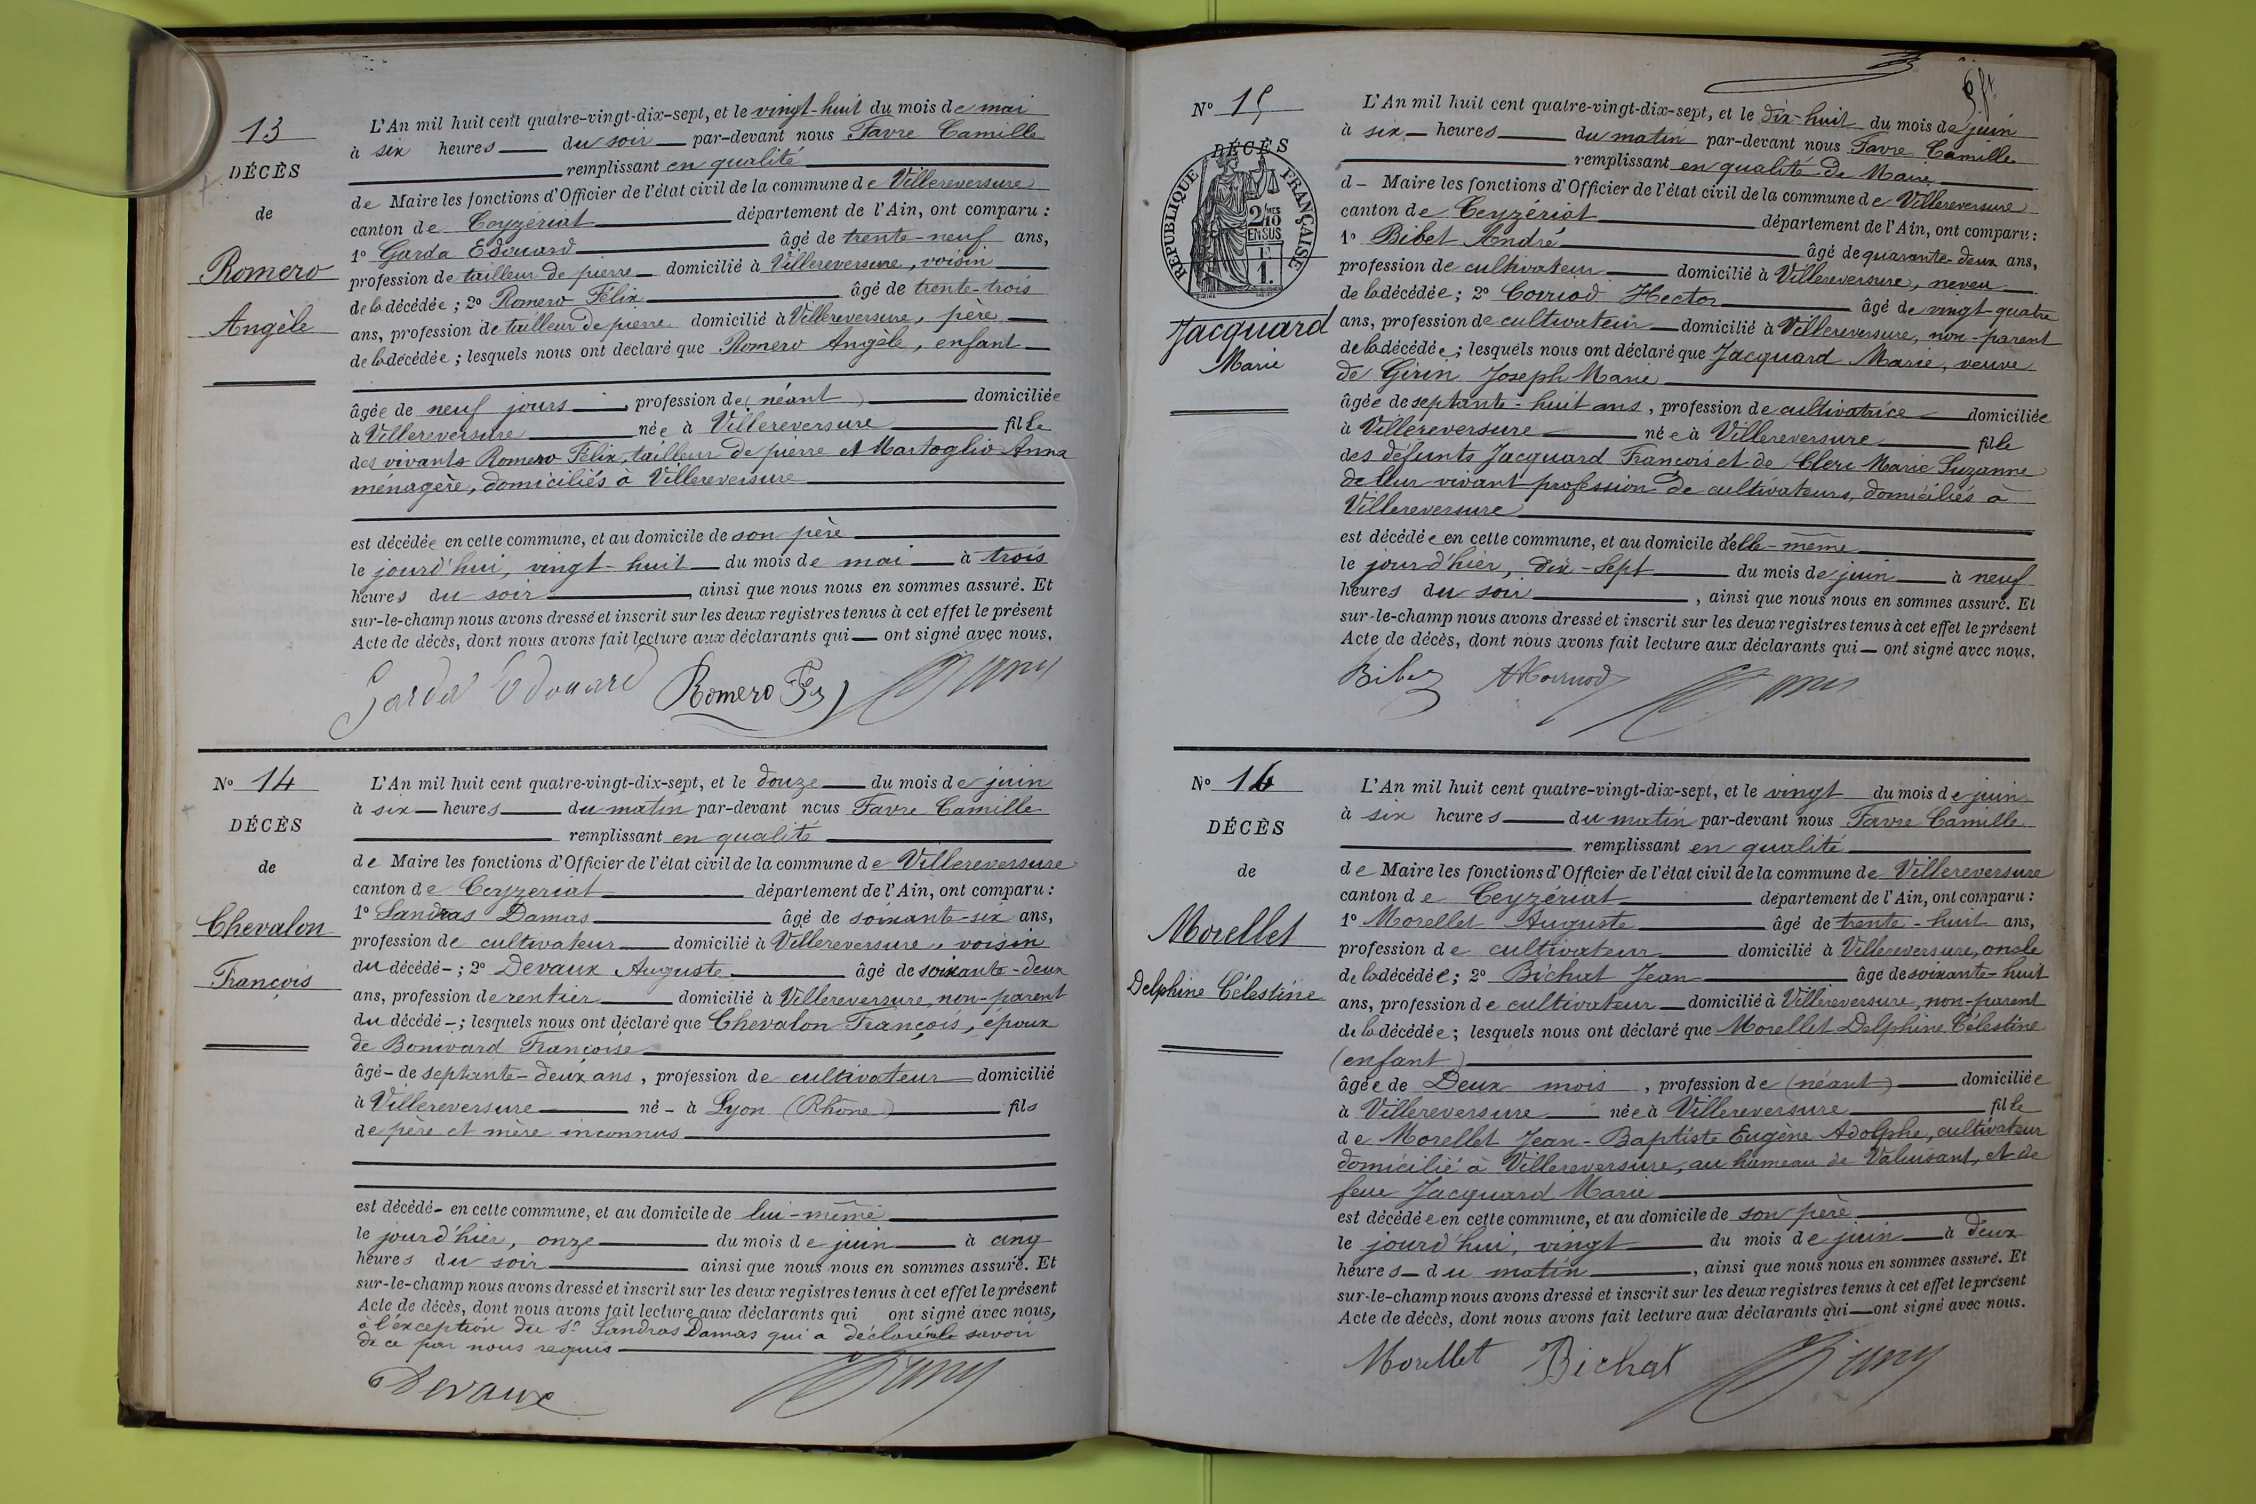 13
DÉCÈS
de
Romero
Angèle
L'An mil huit cent quatre-vingt-dix-sept, et le vingt-huit du mois de mai
à six heures du soir par-devant nous Favre Camille
remplissant en qualité
de Maire les fonctions d'Officier de l'état civil de la commune de Villereversure
canton de Ceyzériat département de l'Ain, ont comparu :
1º Garda Edouard âgé de trente-neuf ans,
profession de tailleur de pierre domicilié à Villereversure, voisin
de la décédée ; 2º Romero Félix âgé de trente-trois
ans, profession de tailleur de pierre domicilié à Villereversure, père
de la décédée ; lesquels nous ont déclaré que Romero Angèle, enfant
âgée de neuf jours, profession de (néant) domiciliée
à Villereversure née à Villereversure fille
des vivants Romero Félix, tailleur de pierre et Martoglio Anna
ménagère, domiciliés à Villereversure
est décédée en cette commune, et au domicile de son père
le jourd'hui, vingt-huit du mois de mai à trois
heures du soir, ainsi que nous nous en sommes assuré. Et
sur-le-champ nous avons dressé et inscrit sur les deux registres tenus à cet effet le présent
Acte de décès, dont nous avons fait lecture aux déclarants qui ont signé avec nous.
Garda Edouard Romero
Nº 14
DÉCÈS
de
Chevalon
François
L'An mil huit cent quatre-vingt-dix-sept, et le douze du mois de juin
à six heures du matin par-devant nous Favre Camille
remplissant en qualité
de Maire les fonctions d'Officier de l'état civil de la commune de Villereversure
canton de Ceyzeriat département de l'Ain, ont comparu :
1º Landras Damas âgé de soixante-six ans,
profession de cultivateur domicilié à Villereversure, voisin
du décédé ; 2º Devaux Auguste âgé de soixante-deux
ans, profession de rentier domicilié à Villereversure, non-parent
du décédé ; lesquels nous ont déclaré que Chevalon François, époux
de Bonivard Françoise
âgé de septante-deux ans, profession de cultivateur domicilié
à Villereversure né à Lyon (Rhône) fils
de père et mère inconnus
est décédé en cette commune, et au domicile de lui-même
le jourd'hier, onze du mois de juin à cinq
heures du soir ainsi que nous nous en sommes assuré. Et
sur-le-champ nous avons dressé et inscrit sur les deux registres tenus à cet effet le présent
Acte de décès, dont nous avons fait lecture aux déclarants qui ont signé avec nous,
à l'exception du Sr Landras Damas qui a déclaré ne le savoir
de ce par nous requis
Devaux
Nº 15
DÉCÈS
RÉPUBLIQUE FRANÇAISE
2/10 EN SUS
F 1.
Jacquard
Marie
L'An mil huit cent quatre-vingt-dix-sept, et le dix-huit du mois de juin
à six heures du matin par-devant nous Favre Camille
remplissant en qualité de Maire
d Maire les fonctions d'Officier de l'état civil de la commune de Villereversure
canton de Ceyzériat département de l'Ain, ont comparu :
1º Bibet André âgé de quarante-deux ans,
profession de cultivateur domicilié à Villereversure, neveu
de la décédée ; 2º Cornod Hector âgé de vingt-quatre
ans, profession de cultivateur domicilié à Villereversure, non-parent
de la décédée ; lesquels nous ont déclaré que Jacquard Marie, veuve
de Girin Joseph Marie
âgée de septante-huit ans, profession de cultivatrice domiciliée
à Villereversure née à Villereversure fille
des défunts Jacquard François et de Clerc Marie Suzanne
de leur vivant profession de cultivateurs, domiciliés à
Villereversure
est décédée en cette commune, et au domicile d'elle-même
le jourd'hier, dix-sept du mois de juin à neuf
heures du soir, ainsi que nous nous en sommes assuré. Et
sur-le-champ nous avons dressé et inscrit sur les deux registres tenus à cet effet le présent
Acte de décès, dont nous avons fait lecture aux déclarants qui ont signé avec nous.
Nº 16
DÉCÈS
de
Morellet
Delphine Célestine
L'An mil huit cent quatre-vingt-dix-sept, et le vingt du mois de juin
à six heures du matin par-devant nous Favre Camille
remplissant en qualité
de Maire les fonctions d'Officier de l'état civil de la commune de Villereversure
canton de Ceyzériat département de l'Ain, ont comparu :
1º Morellet Auguste âgé de trente-huit ans,
profession de cultivateur domicilié à Villereversure, oncle
de la décédée ; 2º Bichat Jean âgé de soixante-huit
ans, profession de cultivateur domicilié à Villereversure, non-parent
de la décédée ; lesquels nous ont déclaré que Morellet Delphine Célestine
(enfant)
âgée de Deux mois, profession de (néant) domiciliée
à Villereversure née à Villereversure fille
de Morellet Jean-Baptiste Eugène Adolphe, cultivateur
domicilié à Villereversure, au hameau de Valuisant, et de
feue Jacquard Marie
est décédée en cette commune, et au domicile de son père
le jourd'hui, vingt du mois de juin à deux
heures du matin, ainsi que nous nous en sommes assuré. Et
sur-le-champ nous avons dressé et inscrit sur les deux registres tenus à cet effet le présent
Acte de décès, dont nous avons fait lecture aux déclarants qui ont signé avec nous.
Morellet Bichat